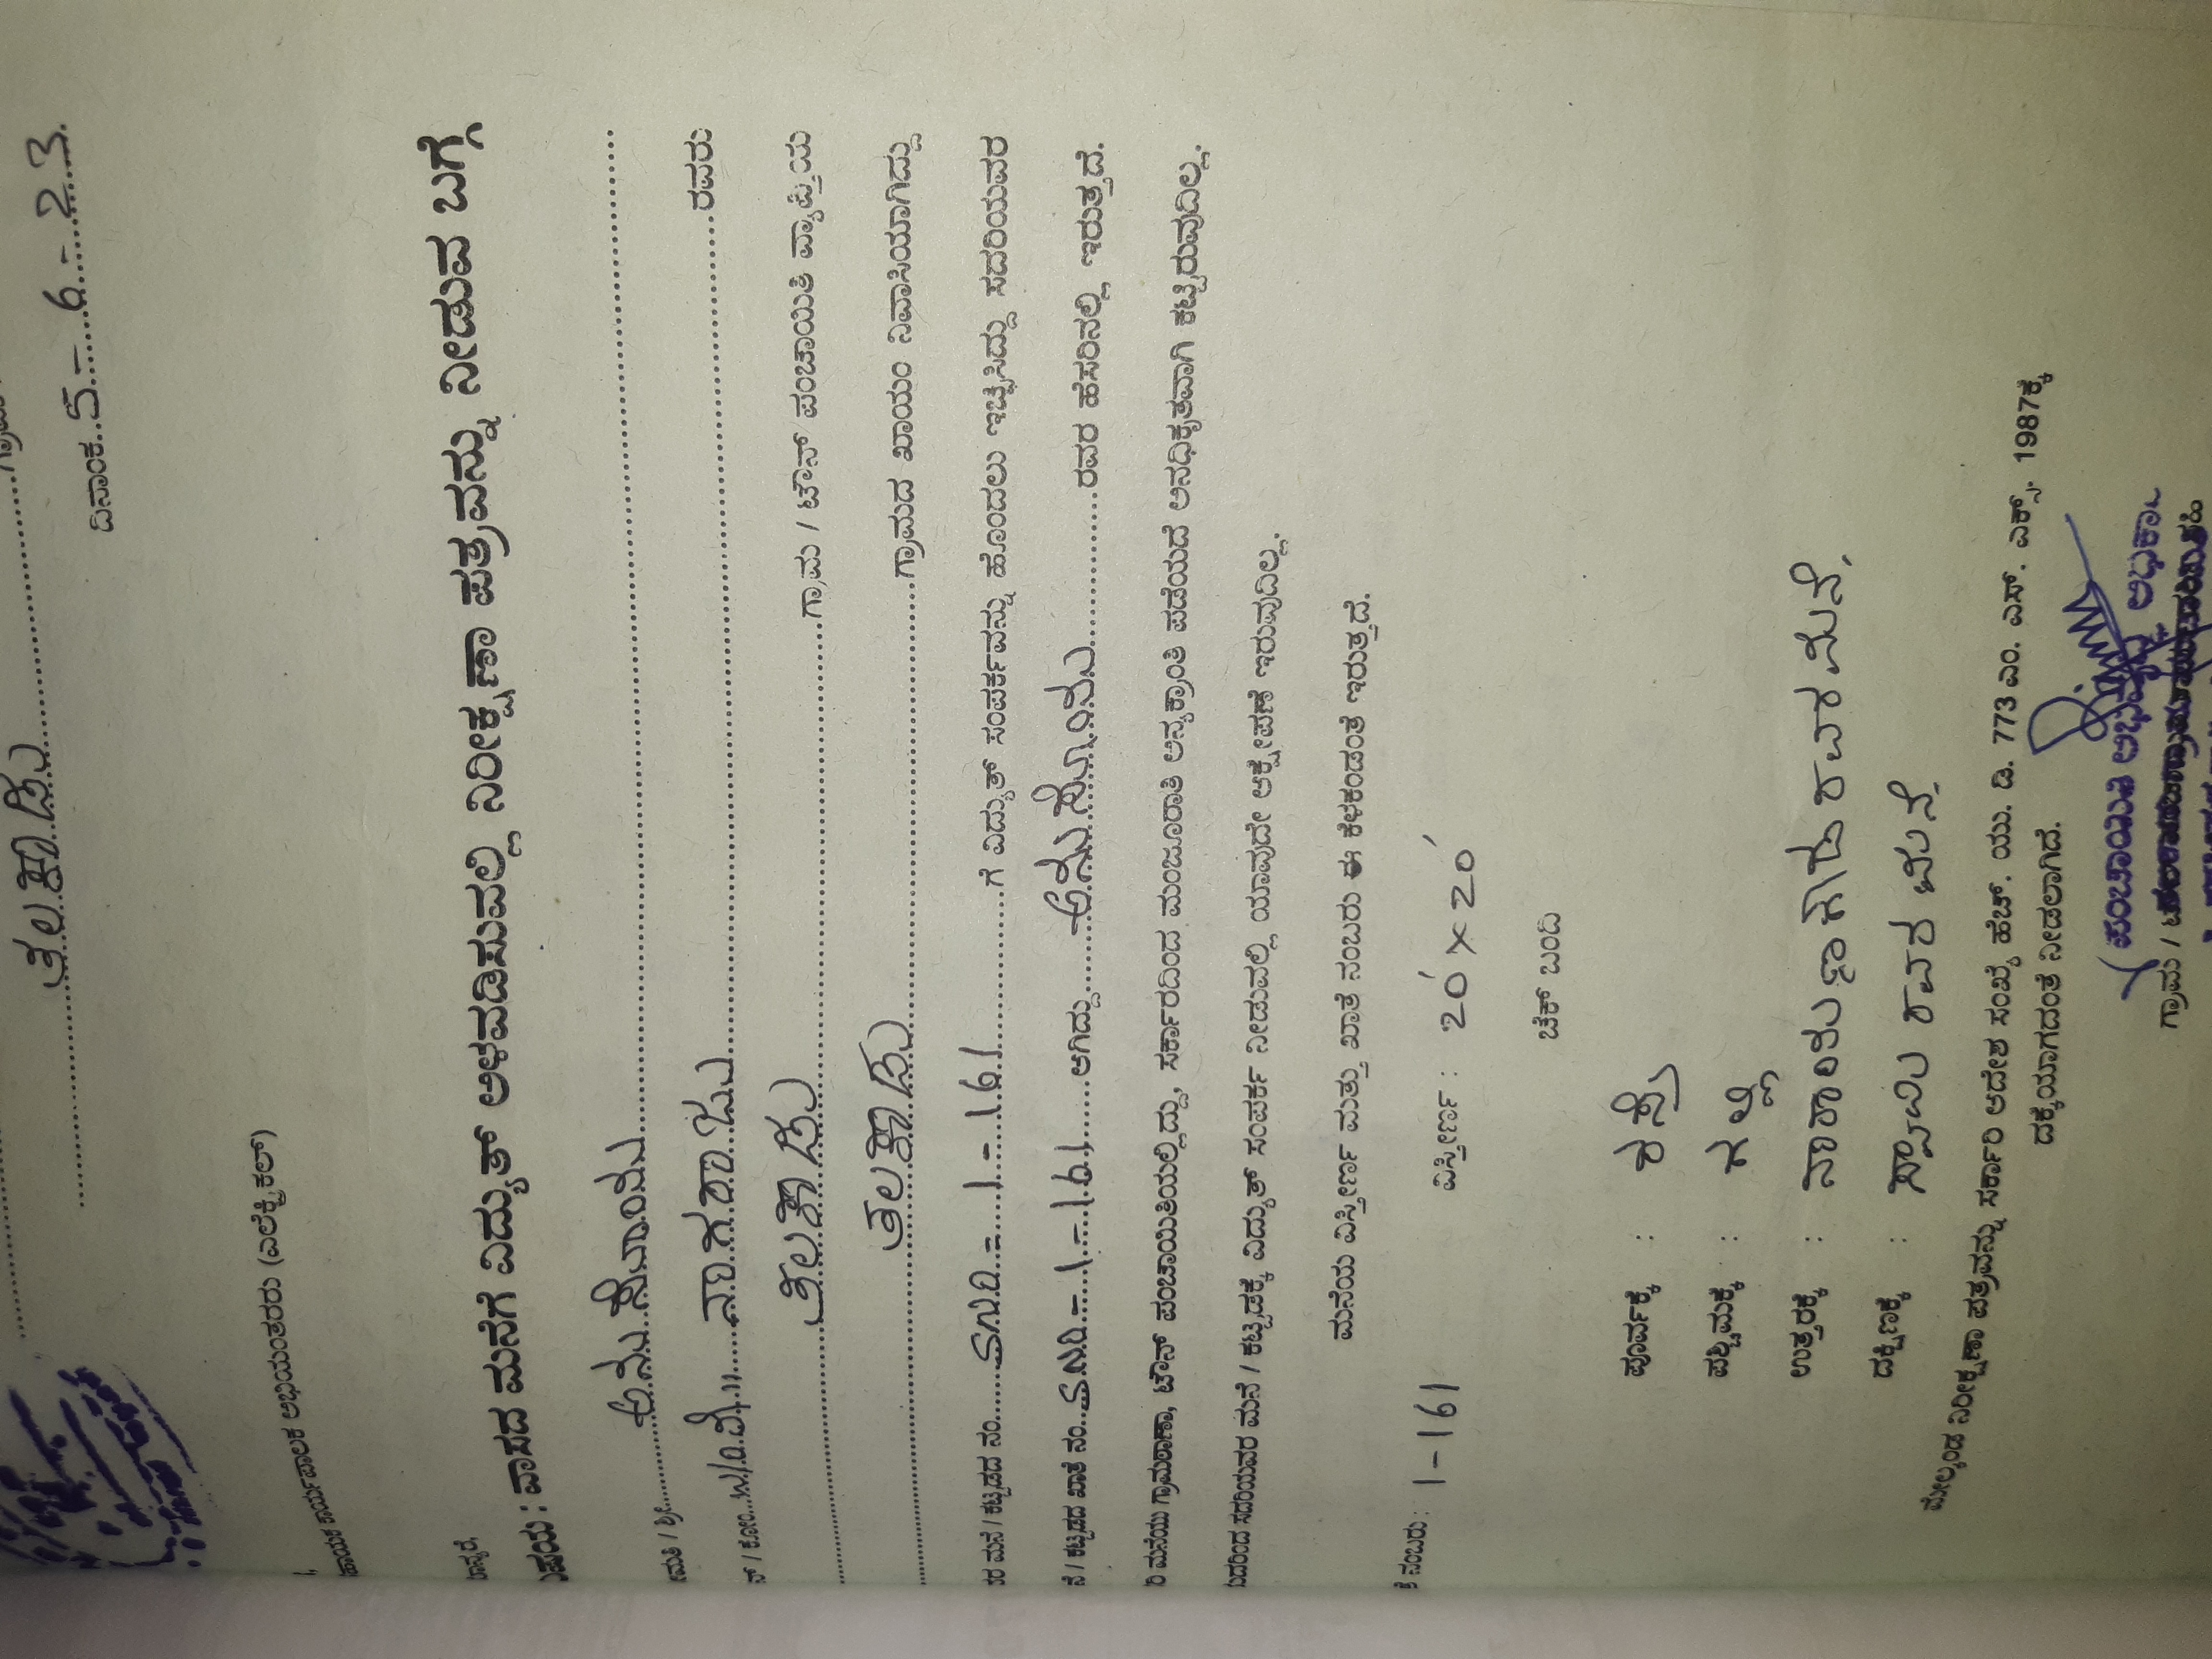 ತಲಕಾಡು
ದಿನಾಂಕ..5-6-23.
ಕಾರ್ಯಪಾಲಕ ಅಭಿಯಂತರರು (ಎಲೆಕ್ಟ್ರಿಕಲ್)
ವಿಷಯ : ವಾಸದ ಮನೆಗೆ ವಿದ್ಯುತ್ ಅಳವಡಿಸುವಲ್ಲಿ ನಿರೀಕ್ಷಣಾ ಪತ್ರವನ್ನು ನೀಡುವ ಬಗ್ಗೆ
ಶ್ರೀ
ಕೋಂ ನಾಗರಾಜು ರವರು
ತಲಕಾಡು ಗ್ರಾಮ / ಟೌನ್ ಪಂಚಾಯಿತಿ ವ್ಯಾಪ್ತಿಯ
ತಲಕಾಡು ಗ್ರಾಮದ ಖಾಯಂ ನಿವಾಸಿಯಾಗಿದ್ದು
ಮನೆ / ಕಟ್ಟಡದ ನಂ. 1-161 ಗೆ ವಿದ್ಯುತ್ ಸಂಪರ್ಕವನ್ನು ಹೊಂದಲು ಇಚ್ಛಿಸಿದ್ದು ಸದರಿಯವರ
ಕಟ್ಟಡದ ಖಾತೆ ನಂ. 1-161 ಆಗಿದ್ದು ರವರ ಹೆಸರಿನಲ್ಲಿ ಇರುತ್ತದೆ.
ಮನೆಯು ಗ್ರಾಮಠಾಣಾ, ಟೌನ್ ಪಂಚಾಯಿತಿಯಲ್ಲಿದ್ದು, ಸರ್ಕಾರದಿಂದ ಮಂಜೂರಾತಿ ಅನ್ಯಕ್ರಾಂತಿ ಪಡೆಯದೆ ಅನಧಿಕೃತವಾಗಿ ಕಟ್ಟಿರುವುದಿಲ್ಲ.
ಸದರಿಯವರ ಮನೆ / ಕಟ್ಟಡಕ್ಕೆ ವಿದ್ಯುತ್ ಸಂಪರ್ಕ ನೀಡುವಲ್ಲಿ ಯಾವುದೇ ಆಕ್ಷೇಪಣೆ ಇರುವುದಿಲ್ಲ.
ಮನೆಯ ವಿಸ್ತೀರ್ಣ ಮತ್ತು ಖಾತೆ ನಂಬರು ಈ ಕೆಳಕಂಡಂತೆ ಇರುತ್ತದೆ.
ನಂಬರು : 1-161 ವಿಸ್ತೀರ್ಣ : 20' x 20'
ಚೆಕ್ ಬಂದಿ
ಪೂರ್ವಕ್ಕೆ : ರಸ್ತೆ
ಪಶ್ಚಿಮಕ್ಕೆ : ಗಲ್ಲಿ
ಉತ್ತರಕ್ಕೆ : ರವರ ಮನೆ,
ದಕ್ಷಿಣಕ್ಕೆ : ರವರ ಮನೆ
ಮೇಲ್ಕಂಡ ನಿರೀಕ್ಷಣಾ ಪತ್ರವನ್ನು ಸರ್ಕಾರಿ ಆದೇಶ ಸಂಖ್ಯೆ ಹೆಚ್. ಯು. ಡಿ. 773 ಎಂ. ಎನ್. ಎಕ್ಸ್. 1987ಕ್ಕೆ
ದಕ್ಕೆಯಾಗದಂತೆ ನೀಡಲಾಗಿದೆ.
ಪಂಚಾಯಿತಿ ಅಭಿವೃದ್ಧಿ ಅಧಿಕಾರಿ
ಗ್ರಾಮ /